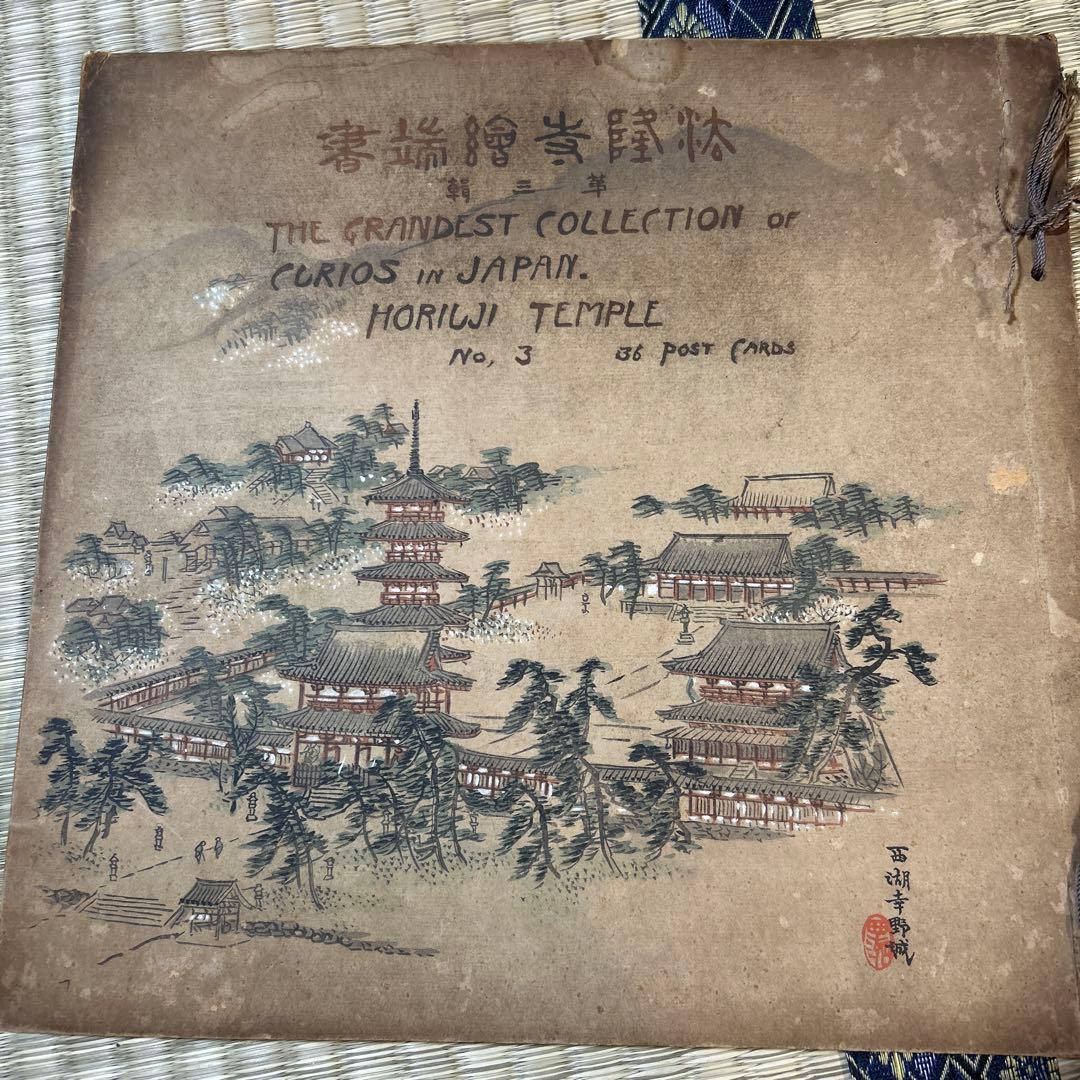 法隆寺繪端書
第三輯
THE GRANDEST COLLECTION OF
CURIOS IN JAPAN.
HORIUJI TEMPLE
No, 3 36 POST CARDS
西湖幸野城